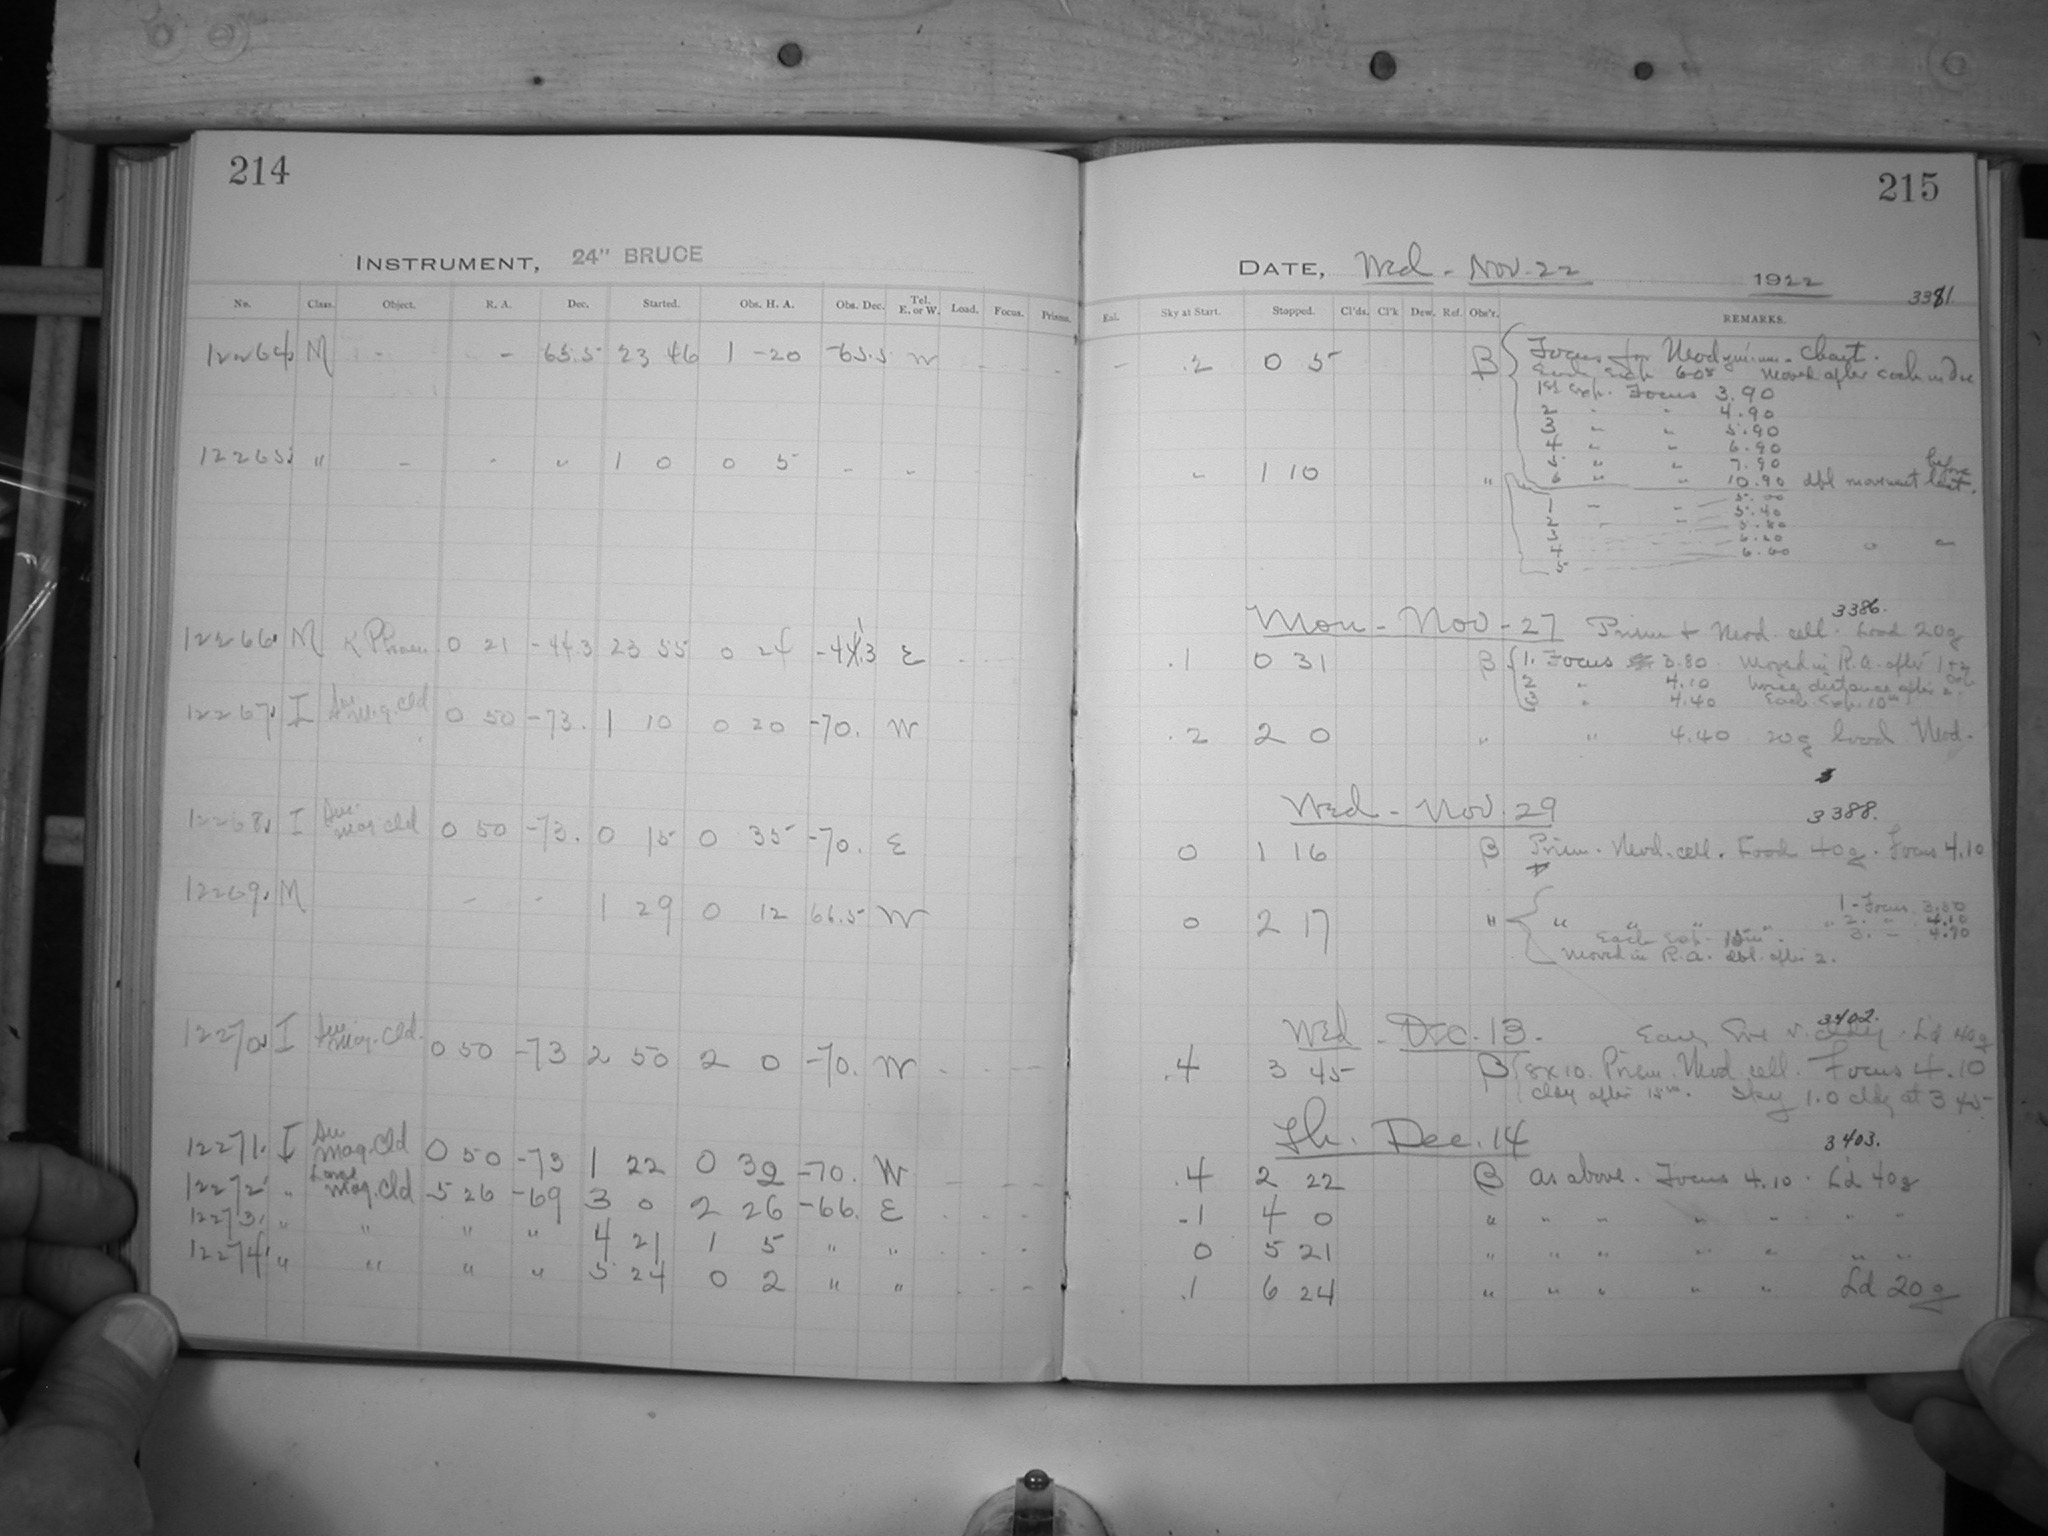 214
INSTRUMENT, 24" BRUCE
No. Class. Object. R. A. Dec. Started. Obs. H. A. Obs. Dec. Tel. E. or W. Load. Focus. Prisms.
12264 M - - 65.5 23 46 1 -20 -65.5 W
12265 " - - " 1 0 0 5 - "
12266 M 0 21 -44.3 23 55 0 24 -41.3 E
12267 I Mag. Cld 0 50 -73. 1 10 0 20 -70. W
12268 I Mag Cld 0 50 -73. 0 15 0 35 -70. E
12269 M - - 1 29 0 12 66.5 W
12270 I Mag. Cld. 0 50 -73 2 50 2 0 -70. W
12271 I Mag. Cld 0 50 -73 1 22 0 32 -70. W
12272 " Large Mag. Cld 5 26 -69 3 0 2 26 -66. E
12273 " " " " 4 21 1 5 " "
12274 " " " " 5 24 0 2 " "
215
DATE, Wed - Nov. 22 1922
3381
Enl. Sky at Start. Stopped. Cl'ds. Cl'k Dew. Ref. Obs'r. REMARKS.
- .2 0 5 B Focus for Neodymium Chart.
Each Exp. moved after each in Dec
1st Exp. Focus 3.90
2 " " 4.90
3 " " 5.90
4 " " 6.90
5 " " 7.90
- 1 10 " 6 " " 10.90 dbl movement before last.
1 - - 5.00
2 - - 5.40
3 5.80
4 6.20
5 6.60 " "
3386.
Mon - Nov - 27 Prism + Neod. cell. Load 20g
.1 0 31 B 1. Focus 3.80. Moved in R.A. after 1
2 " 4.10 distance after 2.
3 " 4.40 Each Exp. 10m
.2 2 0 " " 4.40 20g Load Neod.
Wed - Nov. 29 3388.
0 1 16 B Prism. Neod. cell. Load 40g. Focus 4.10
0 2 17 " " " " 1 - Focus 3.80
2. - 4.10
Each Exp. 15m. 3. - 4.40
Moved in R.A. dbl. after 2.
3402.
Wed - Dec. 13. Ld 40g
.4 3 45 B 8x10. Prism. Neod. cell. Focus 4.10
Cldy after 15m. Sky 1.0 cldy at 3 45
Th. Dec. 14 3403.
.4 2 22 B As above. Focus 4.10. L'd 40g
.1 4 0 " " " " " " "
0 5 21 " " " " " " "
.1 6 24 " " " " " Ld 20g